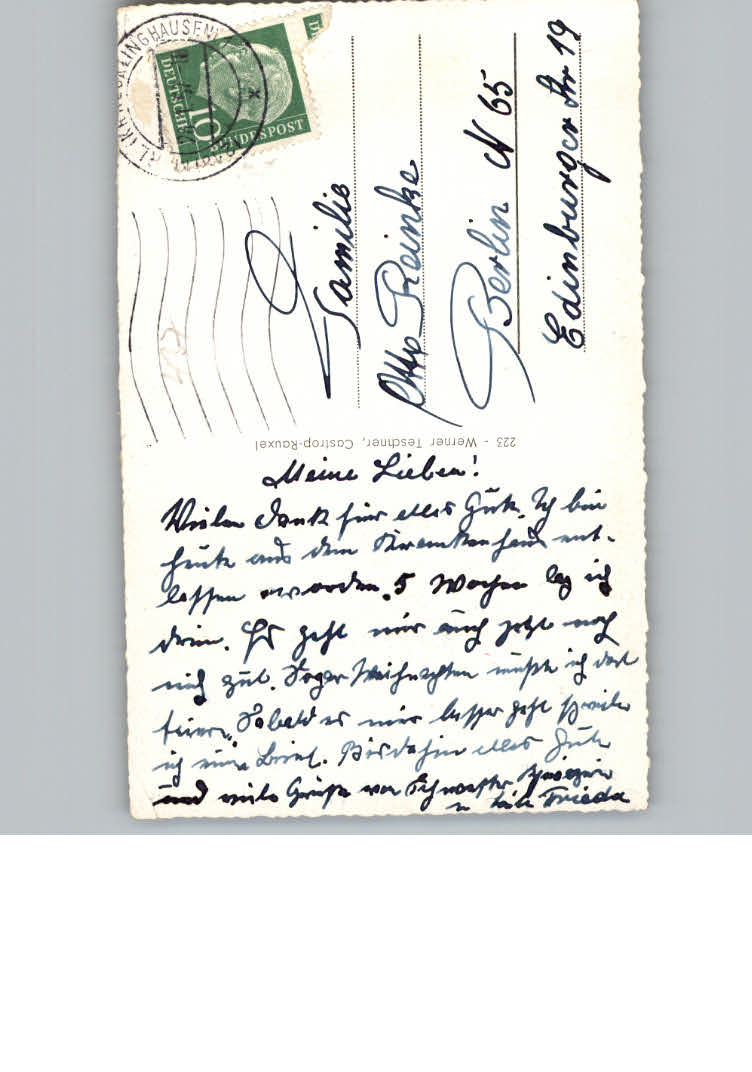 RECKLINGHAUSEN
DEUTSCHE
BUNDESPOST
10
Familie
Otto Reinke
Berlin N 65
Edinburger Str 19
223 - Werner Teschner, Castrop-Rauxel
Meine Lieben!
Vielen Dank für alles Gute. Ich bin
heute aus dem Krankenhaus ent-
lassen worden. 5 Wochen lag ich
drin. Es geht mir auch jetzt noch
nicht gut. Sogar Weihnachten mußte ich dort
feiern. Sobald es mir besser geht schreibe
ich einen Brief. Bis dahin alles Gute
und viele Grüße von Schwester
u. Frieda